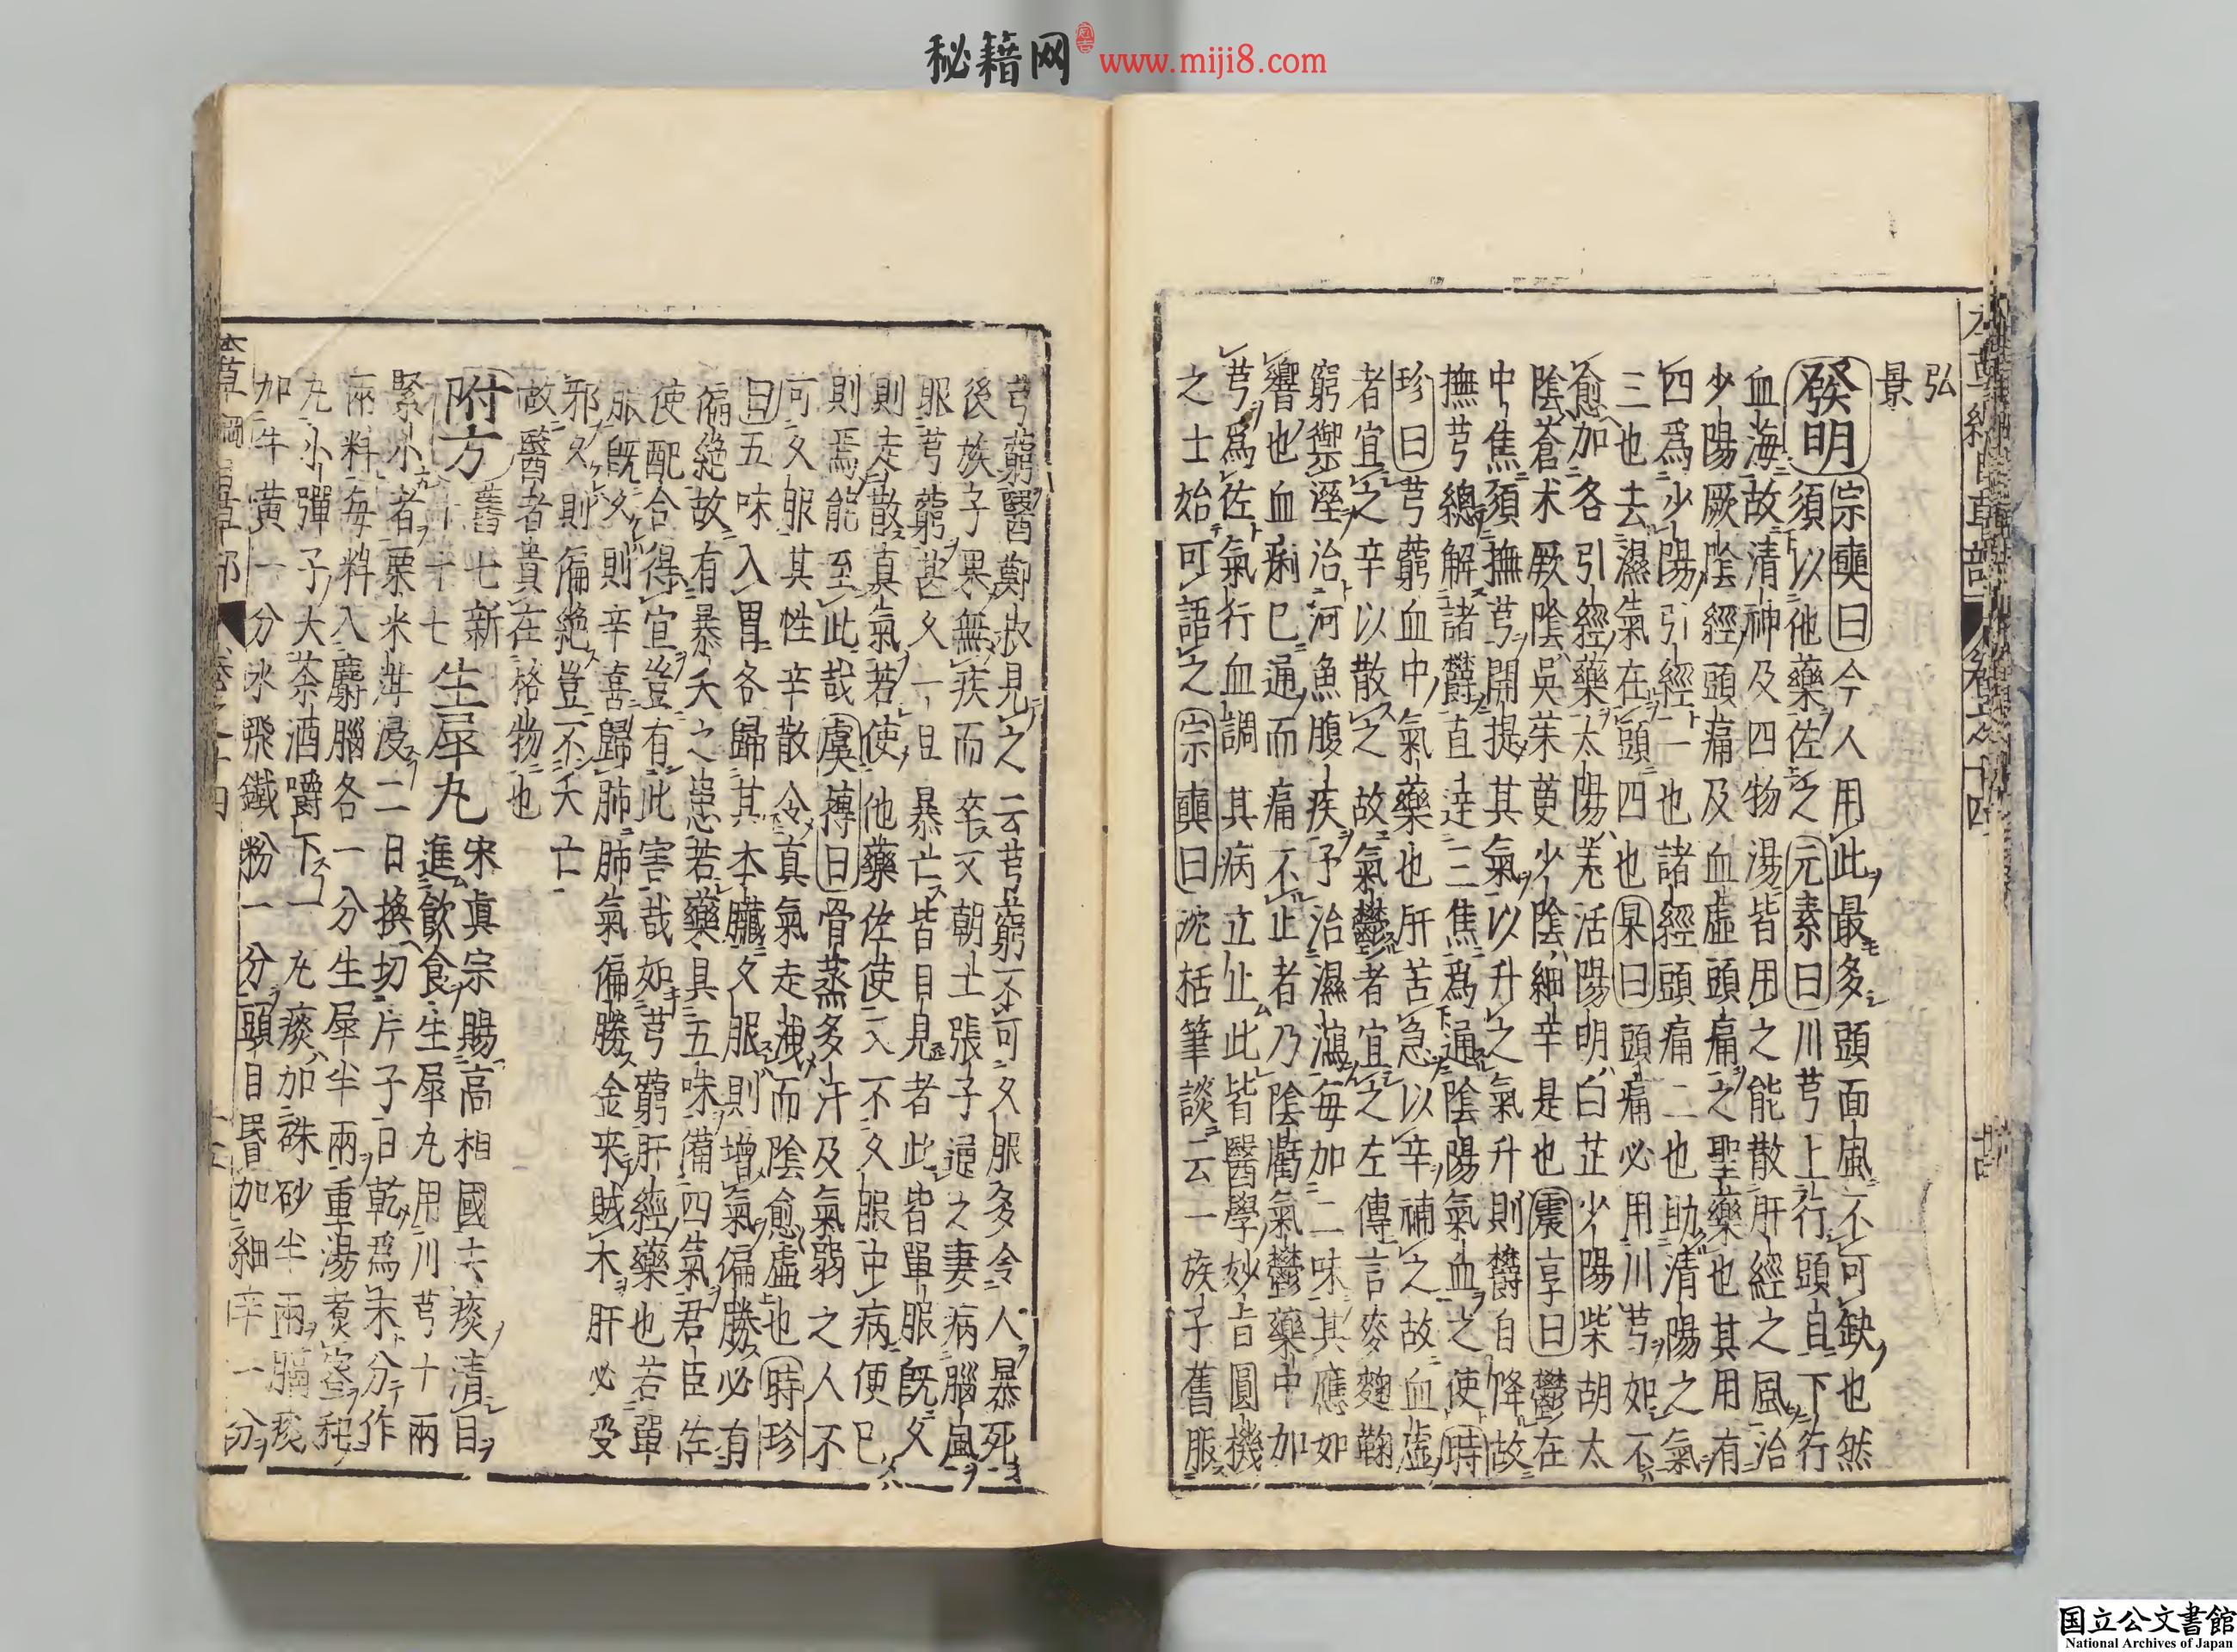 秘籍网 www.miji8.com
弘
景
發明宗奭曰今人用此最多頭面風不可缺也然
須以他藥佐之元素曰川芎上行頭目下行
血海故清神及四物湯皆用之能散肝經之風治
少陽厥陰經頭痛及血虛頭痛之聖藥也其用有
四爲少陽引經一也諸經頭痛二也助清陽之氣
三也去濕氣在頭四也杲曰頭痛必用川芎如不
愈加各引經藥太陽羌活陽明白芷少陽柴胡太
陰蒼术厥陰吳茱萸少陰細辛是也震亨曰鬱在
中焦須撫芎開提其氣以升之氣升則鬱自降故
撫芎總解諸鬱直達三焦爲通陰陽氣血之使時
珍曰芎藭血中氣藥也肝苦急以辛補之故血虛
者宜之辛以散之故氣鬱者宜之左傳言麥麴鞠
窮禦溼治河魚腹疾予治濕瀉每加二味其應如
響也血痢已通而痛不止者乃陰虧氣鬱藥中加
芎爲佐氣行血調其病立止此皆醫學妙旨圓機
之士始可語之宗奭曰沈括筆談云一族子舊服
芎藭醫鄭叔見之云芎藭不可久服多令人暴死
後族子果無疾而卒又朝士張子通之妻病腦風
服芎藭甚久一旦暴亡皆目見者此皆單服既久
則走散真氣若使他藥佐使又不久服中病便已
則焉能至此哉虞摶曰骨蒸多汗及氣弱之人不
可久服其性辛散令真氣走洩而陰愈虛也時珍
曰五味入胃各歸其本臟久服則增氣偏勝必有
偏絶故有暴夭之患若藥具五味備四氣君臣佐
使配合得宜豈有此害哉如芎藭肝經藥也若單
服既久則辛喜歸肺肺氣偏勝金来賊木肝必受
邪久則偏絶豈不夭亡
故醫者貴在格物也
附方舊七新
十七生犀丸宋真宗賜高相國去痰清目
進飲食生犀丸用川芎十兩
緊小者粟米泔浸二日換切片子日乾爲末分作
兩料每料入麝腦各一分生犀半兩重湯煑蜜和
丸小彈子大茶酒嚼下一丸痰加硃砂半兩膈痰
加牛黄一分水飛鐵粉一分頭目昏加細辛一分
国立公文書館
National Archives of Japan